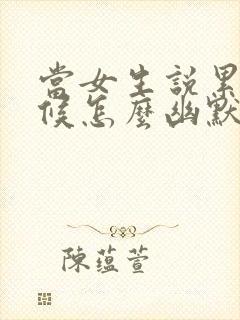 當女生説累
候怎麼幽默
陳蘊萱